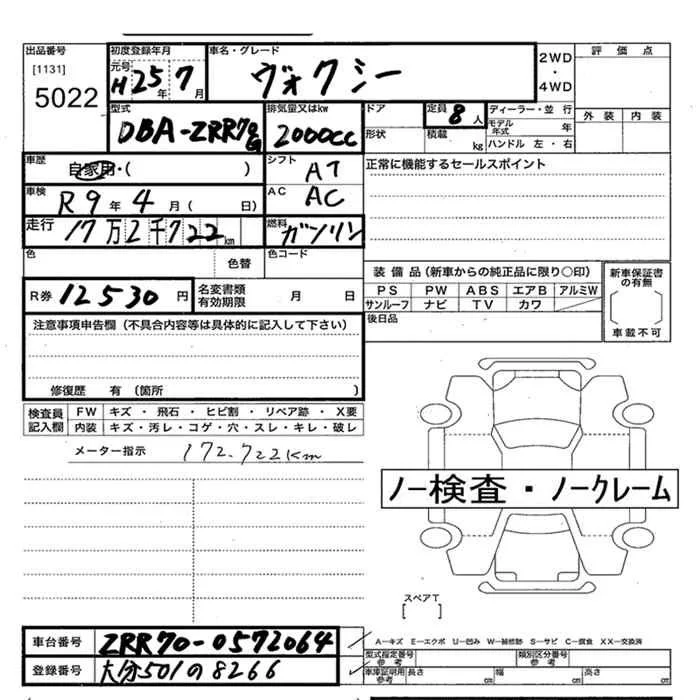 出品番号
[1131]
5022
初度登録年月
元号
H25年7月
車名・グレード
ヴォクシー
2WD
・
4WD
評価点
外装 内装
型式
DBA-ZRR70G
排気量又はkw
2000cc
ドア
形状
定員 8人
積載 kg
ディーラー・並行
モデル年式 年
ハンドル 左・右
車歴
自家用・( )
シフト
AT
正常に機能するセールスポイント
車検
R9年4月( 日)
AC
AC
走行
17万2千722km
燃料
ガソリン
色
色替
色コード
装備品(新車からの純正品に限り○印)
PS PW ABS エアB アルミW
サンルーフ ナビ TV カワ
新車保証書の有無
車載不可
R券 12530円
名変書類有効期限 月 日
後日品
注意事項申告欄(不具合内容等は具体的に記入して下さい)
修復歴 有(箇所 )
検査員記入欄
FW キズ・飛石・ヒビ割・リペア跡・X要
内装 キズ・汚レ・コゲ・穴・スレ・キレ・破レ
メーター指示 172,722km
ノー検査・ノークレーム
スペアT
[ ]
車台番号 ZRR70-0572064
登録番号 大分501の8266
A―キズ E―エクボ U―凹み W―補修跡 S―サビ C―腐食 XX―交換済
型式指定番号 参考
類別区分番号 参考
車庫証明用 参考 長さ cm 幅 cm 高さ cm